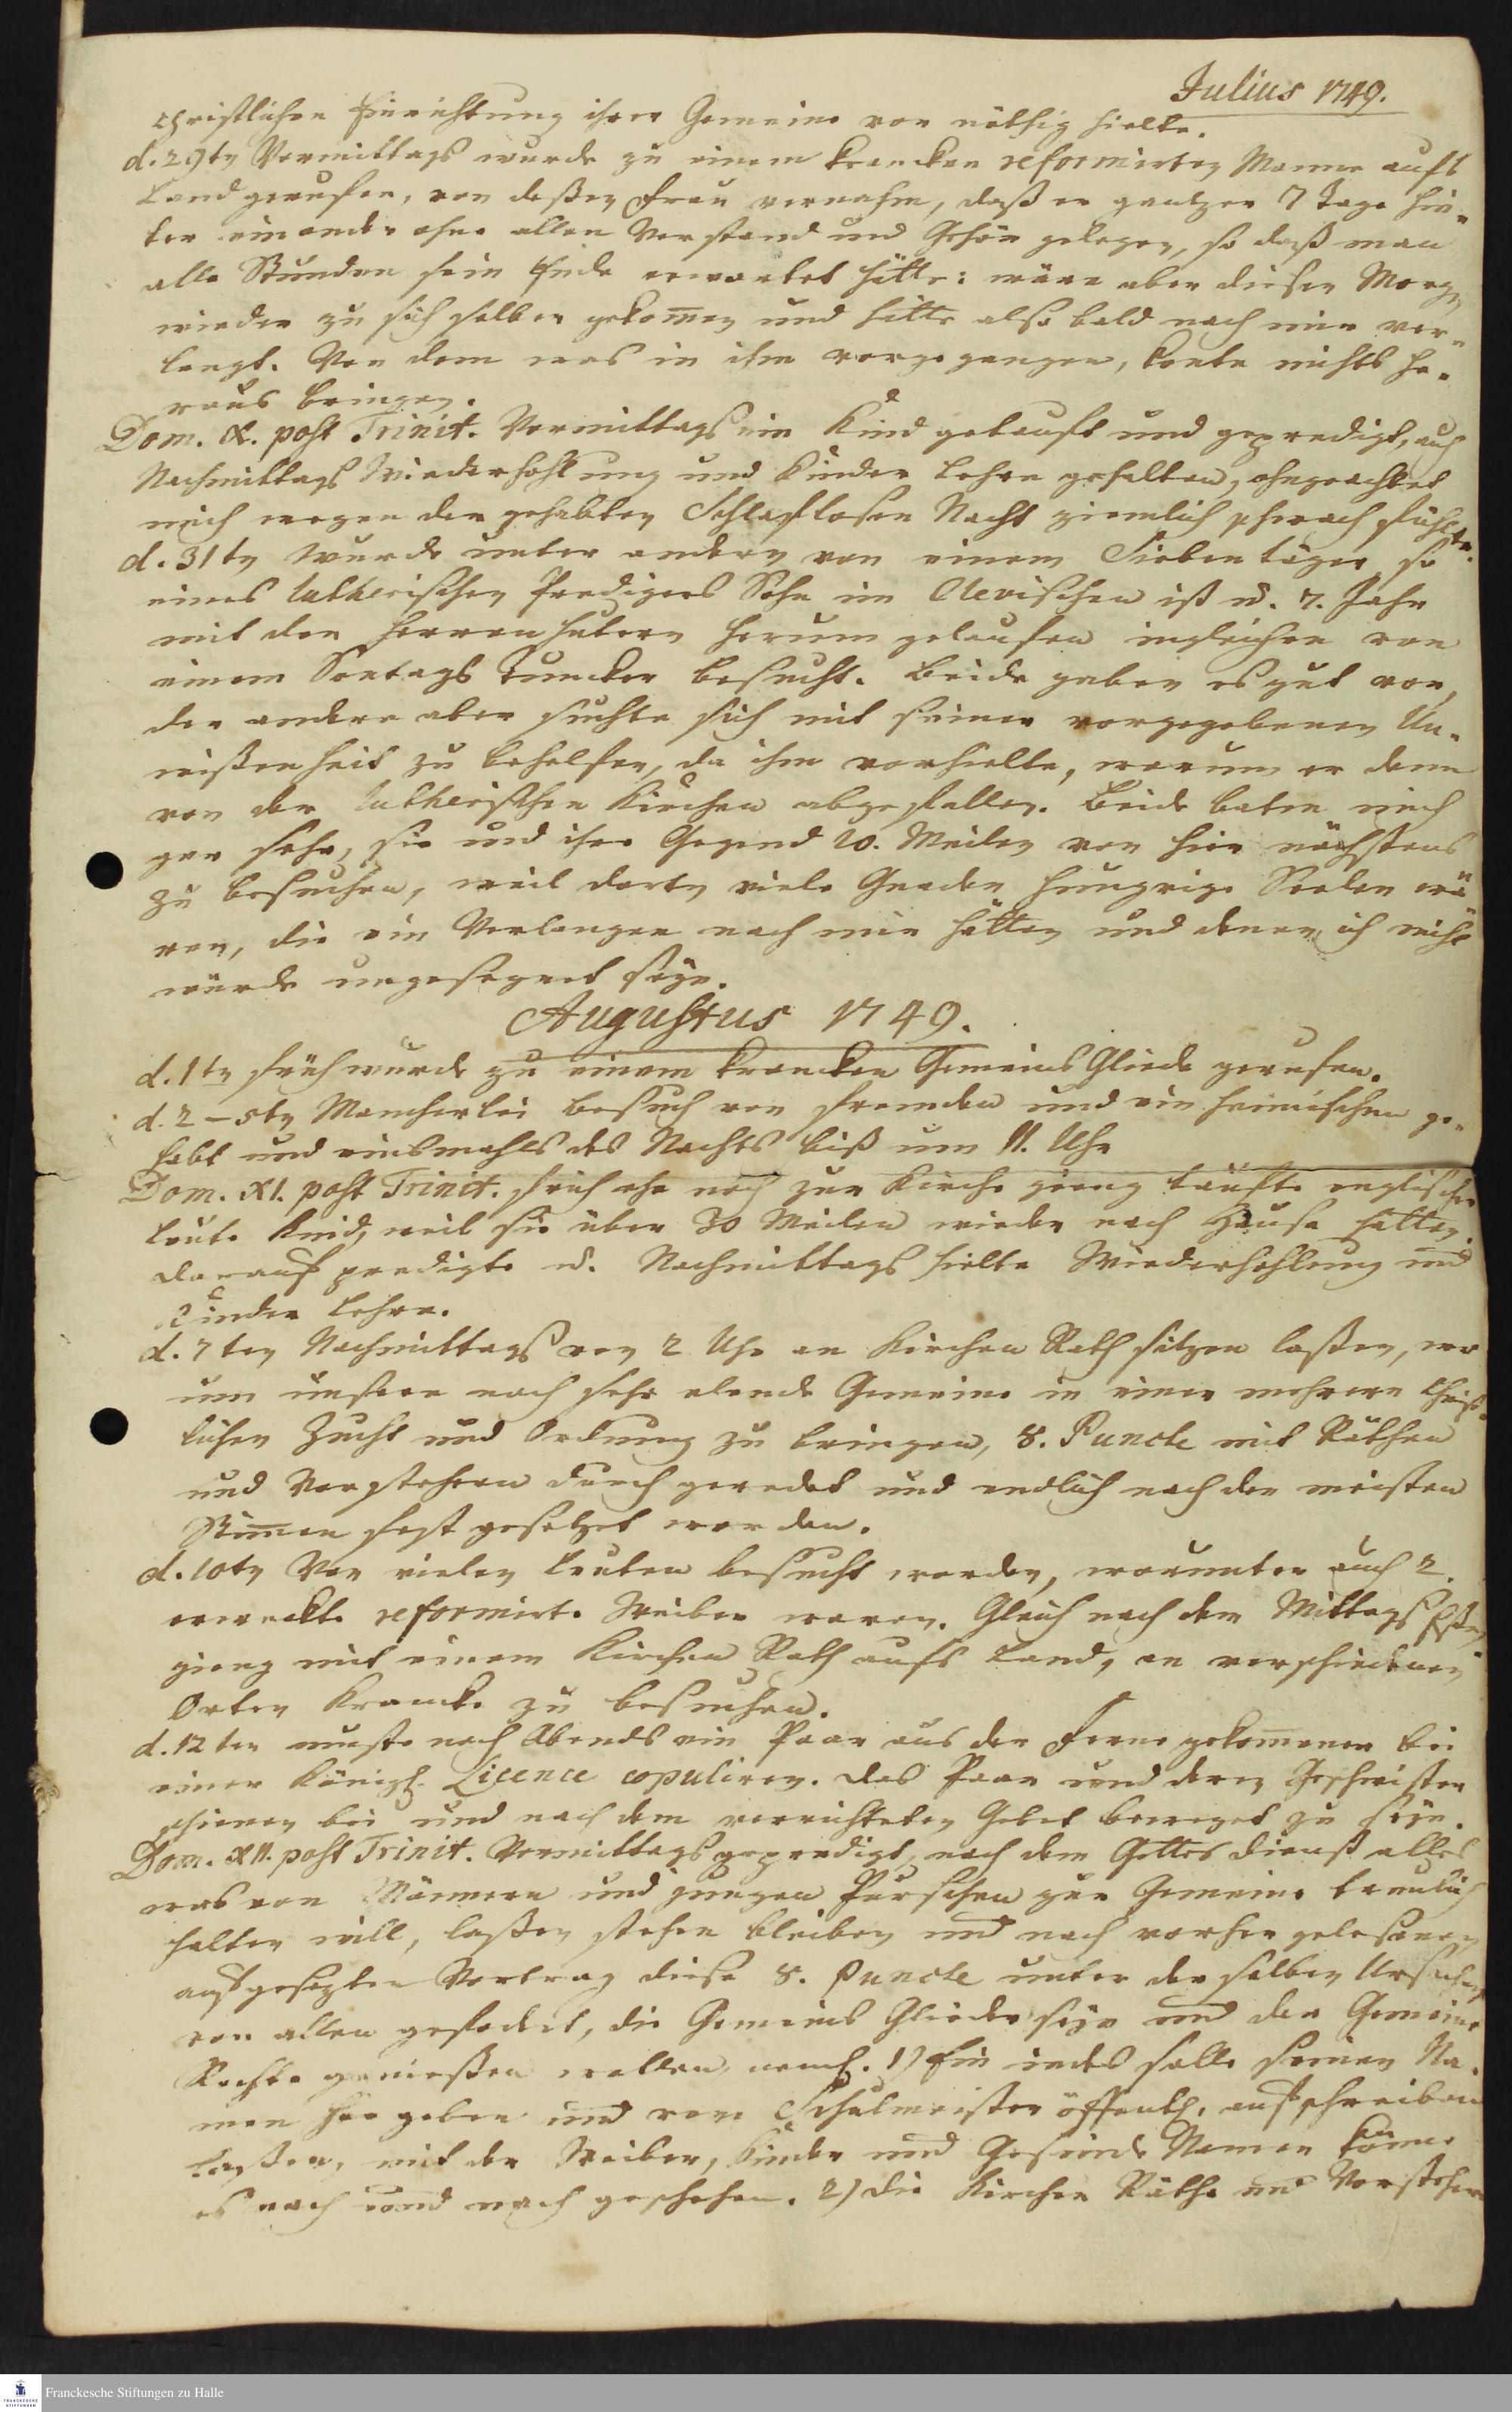 Julius 1749.
christlichen Einrichtung ihrer Gemeine vor nöthig hielte.
d. 29tn Vormittags wurde zu einem krancken reformirten Manne aufs
Land gerufen, von deßen Frau vernahm, daß er gantzer 7 Tage hin-
ter einander ohne allen Verstand und Gehör gelegen, so daß man
alle Stunden sein Ende erwartet hätte: wäre aber diesen Morgen
wieder zu sich selber gekom̄en und hätte also bald nach mir ver-
langt. Von dem was in ihm vorgegangen, konte nichts he-
raus bringen.
Dom. X. post Trinit. Vormittags ein Kind getauft und gepredigt, auch
Nachmittags Wiederhohlung und Kinder Lehre gehalten, ohngeachtet
mich wegen der gehabten Schlaflosen Nacht ziemlich schwach fühlte.
d. 31tn wurde unter andern von einem Siebentäger so
eines lutherischen Predigers Sohn im Clevischen ist u. 7. Jahr
mit den Herrenhutern herum gelaufen ingleichen von
einem Sontags Tuncker besucht. Beide gaben es gut vor,
der andere aber suchte sich mit seiner vorgegebenen Un-
wißenheit zu behelfen, da ihm vorhielte, warum er denn
von der lutherischen Kirchen abgefallen. Beide baten mich
gar sehr, sie und ihre Gegend 20. Meilen von hier nächstens
zu besuchen, weil dorten viele Gnaden hungrige Seelen wä-
ren, die ein Verlangen nach mir hätten und denen ich nicht
würde ungesegnet seyn.
Augustus 1749.
d. 1tn früh wurde zu einem krancken Gemeins Gliede gerufen.
d. 2-5tn Mancherlei Besuch von fremden und ein heimischen ge-
habt und einsmahls des Nachts biß um 11. Uhr
Dom. XI. post Trinit. früh ehe noch zur Kirche gieng taufte englischer
Leute Kind, weil sie über 30 Meilen wieder nach Hause hatten.
darauf predigte u. Nachmittags hielte Wiederhohlung und
Kinder Lehre.
d. 7ten Nachmittags von 2 Uhr an Kirchen Rath sitzen laßen, wo
um unsere noch sehr elende Gemeine in einer mehrere Christ-
lichen Zucht und Ordnung zu bringen, 8. Puncte mit Räthen
und Vorstehern durch geredet und endlich nach den meisten
Stim̄en fest gesetzet worden.
d. 10tn Von vielen Leuten besucht worden, worunter auch 2.
erweckte reformirte Weiber waren. Gleich nach dem Mittags Eßen
gieng mit einem Kirchen Rath aufs Land, an verschiedenen
Orten Krancke zu besuchen.
d. 12ten muste noch Abends ein Paar aus der Ferne gekom̄enen bei
einer Königl. Licence copuliren. das Paar und deren Geschwister
schienen bei und nach dem verrichteten Gebet beweget zu seyn.
Dom. XII. post Trinit. Vormittags gepredigt, nach dem Gottes dienst alles
was von Männern und jungen Purschen zur Gemeine treulich
halten will, laßen stehen bleiben und nach vorher gelesenen
aufgesezten Vortrag diese 8. Puncte unter derselben Ursachen
von allen gefodert, die Gemeins Glieder seyn und der Gemeine
Rechte genießen wollen, neml. 1) Ein iedes solle seinen Na-
men her geben und vom Schulmeister öffentl. aufschreiben
laßen, mit der Weiber, Kinder und Gesinde Namen könne
es nach und nach geschehen. 2) die Kirchen Räthe und Vorsteher
Franckesche Stiftungen zu Halle